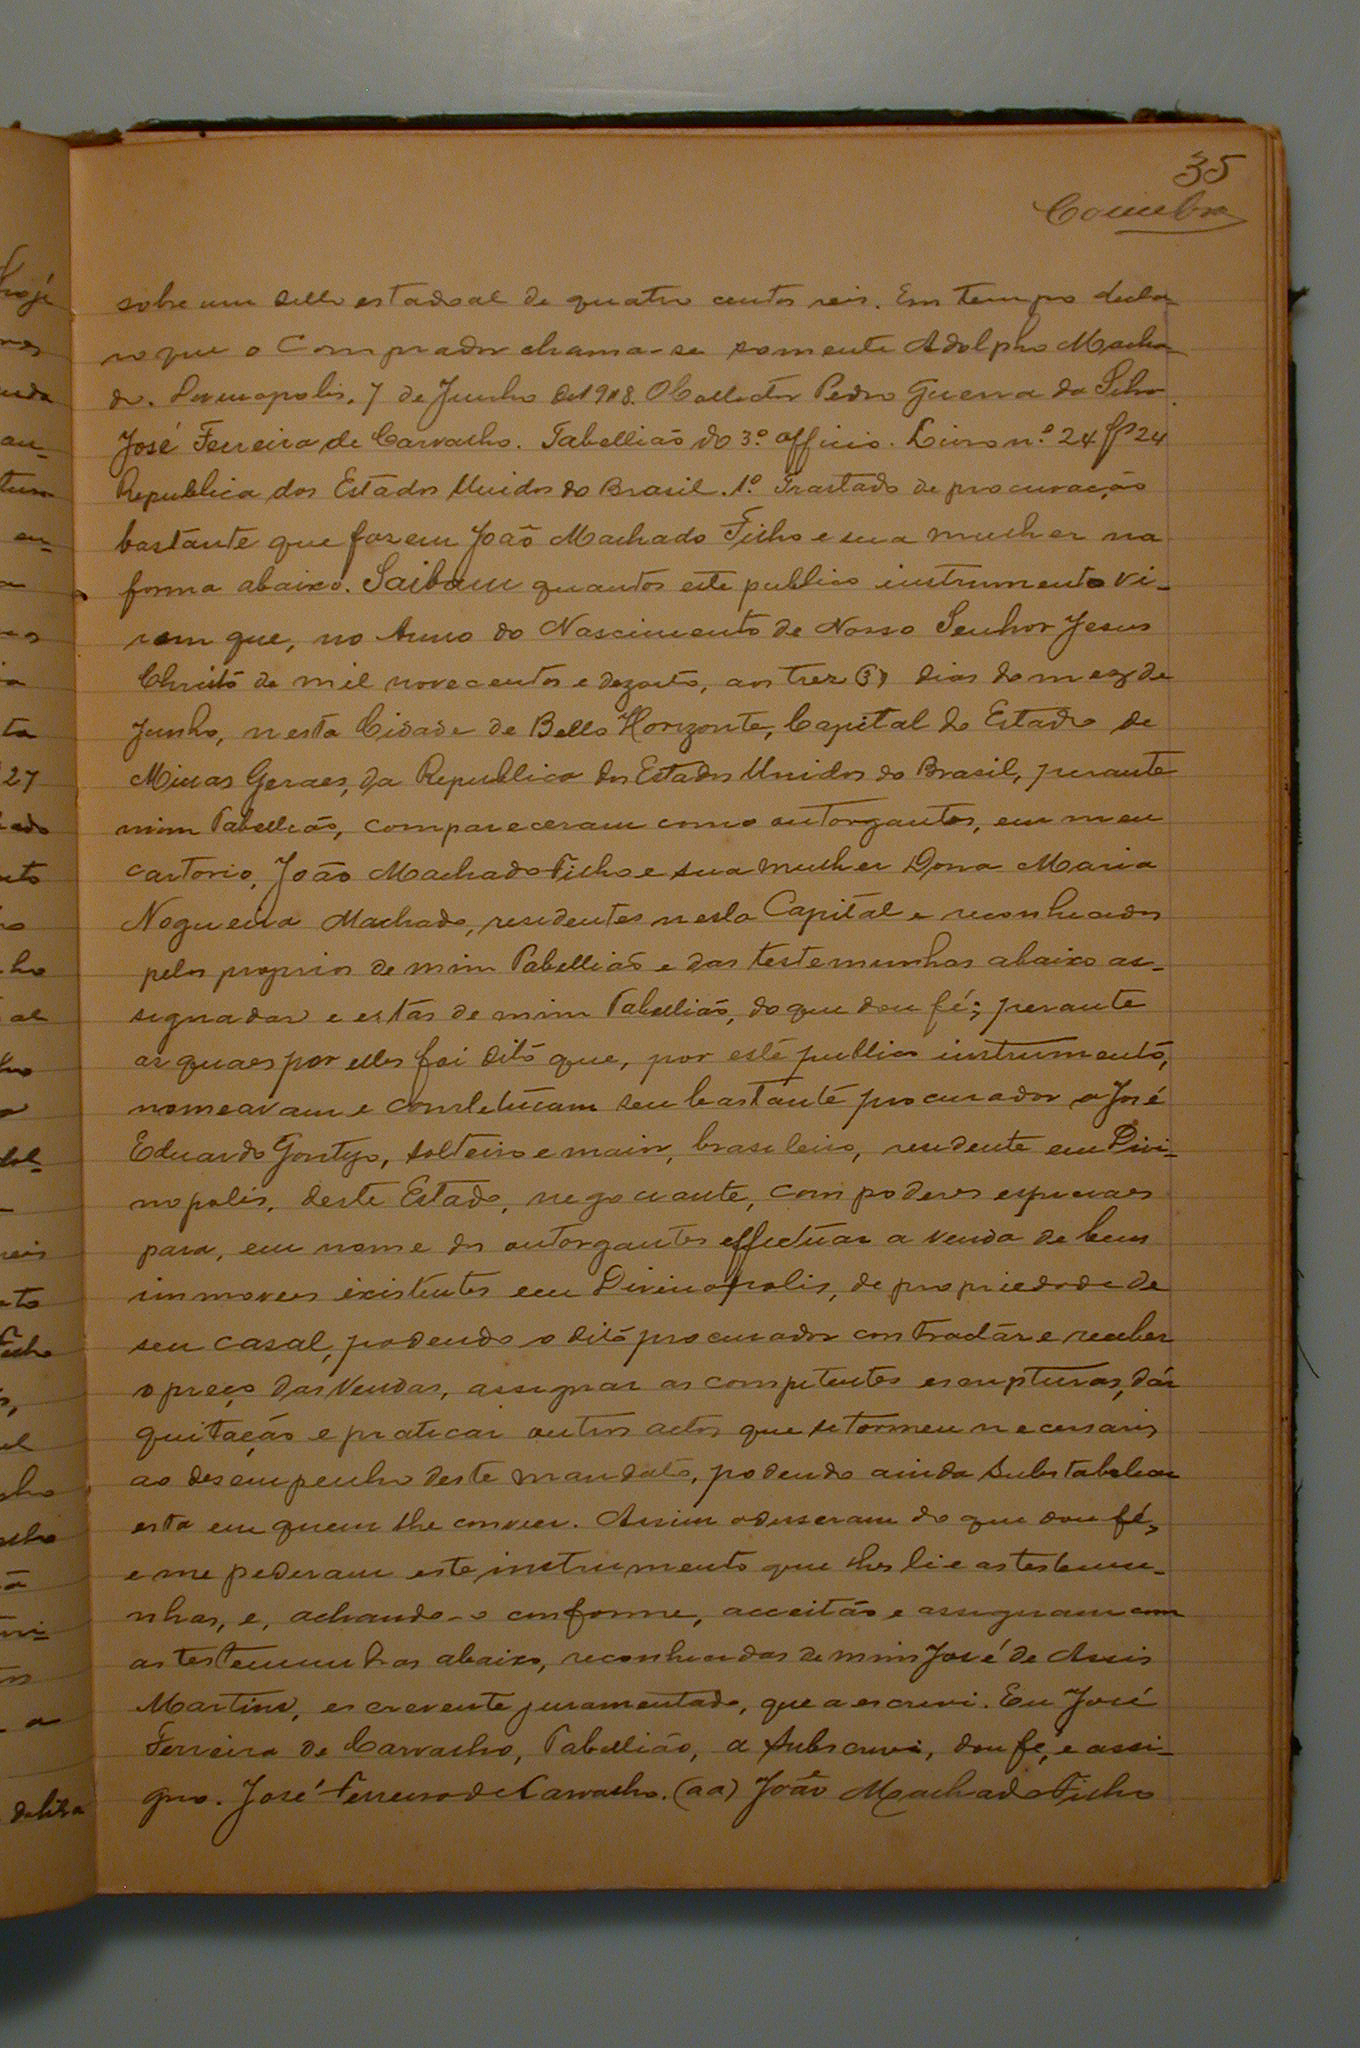 35
Coimbra
sobre um sello estadoal de quatro centos reis. Em tempo decla-
ro que o Comprador chama-se somente Adolpho Macha-
do. Divinopolis, 7 de Junho de 1918. O Collector Pedro Guerra da Silva.
José Ferreira de Carvalho. Tabellião do 3.º officio. Livro n.º 24 fls 24
Republica dos Estados Unidos do Brasil. 1.º Trastado de procuração
bastante que fazem João Machado Filho e sua mulher na
forma abaixo. Saibam quantos este publico instrumento vi-
rem que, no Anno do Nascimento de Nosso Senhor Jesus
Christo de mil novecentos e dezoito, aos trez (3) dias do mez de
Junho, nesta Cidade de Bello Horizonte, Capital do Estado de
Minas Geraes, da Republica dos Estados Unidos do Brasil, perante
mim Tabellião, compareceram como outorgantes, em meu
cartorio, João Machado Filho e sua mulher Dona Maria
Nogueira Machado, residentes nesta Capital e reconhecidos
pelos proprios de mim Tabellião e das testemunhas abaixo as-
signadas e estas de mim Tabellião, do que dou fé; perante
as quaes por elles foi dito que, por este publico instrumento,
nomeavam e constituiam seu bastante procurador a José
Eduardo Gontijo, solteiro e maior, brasileiro, residente em Divi-
nopolis, deste Estado, negociante, com poderes especiaes
para, em nome dos outorgantes effectuar a venda de bens
immoveis existentes em Divinopolis, de propriedade de
seu casal, podendo o dito procurador contractar e receber
o preço das vendas, assignar as competentes escripturas, dar
quitação e praticar outros actos que se tornem necessarios
ao desempenho deste mandato, podendo ainda substabelecer
esta em quem lhe convier. Assim o disseram do que dou fé,
e me pediram este instrumento que lhes li e as testemu-
nhas, e, achando-o conforme, acceitão e assignam com
as testemunhas abaixo, reconhecidas de mim José de Assis
Martins, escrevente juramentado, que a escrevi. Eu José
Ferreira de Carvalho, Tabellião, a subscrevi, dou fé, e assi-
gno. José Ferreira de Carvalho. (aa) João Machado Filho